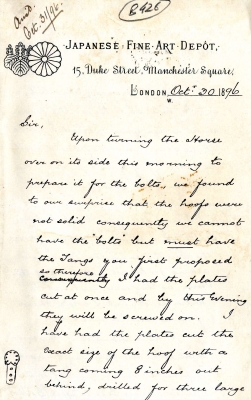 Ansd.
Dec. 31/96.
8426
JAPANESE FINE·ART DEPÔT,
15, Duke Street, Manchester Square,
LONDON, Oct. 30 1896
W.
Sir,
Upon turning the Horse
over on its side this morning to
prepare it for the bolts, we found
to our surprise that the hoofs were
not solid consequently we cannot
have the "bolts" but must have
the Tangs you first proposed
so therefore
consequently I had the plates
cut at once and by this Evening
they will be screwed on. I
have had the plates cut the
exact size of the hoof with a
tang coming 8 inches out
behind, drilled for three large